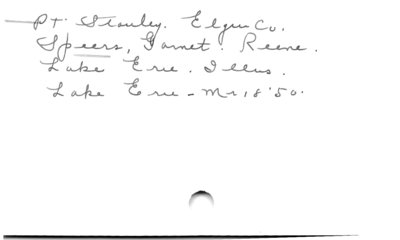 Pt. Stanley. Elgin Co.
Speers, Garnet. Reeve.
Lake Erie. Illus.
Lake Erie - Mr 18 '50.